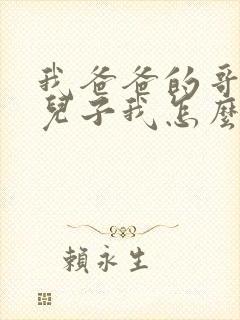 我爸爸的哥
兒子我怎麼
賴永生